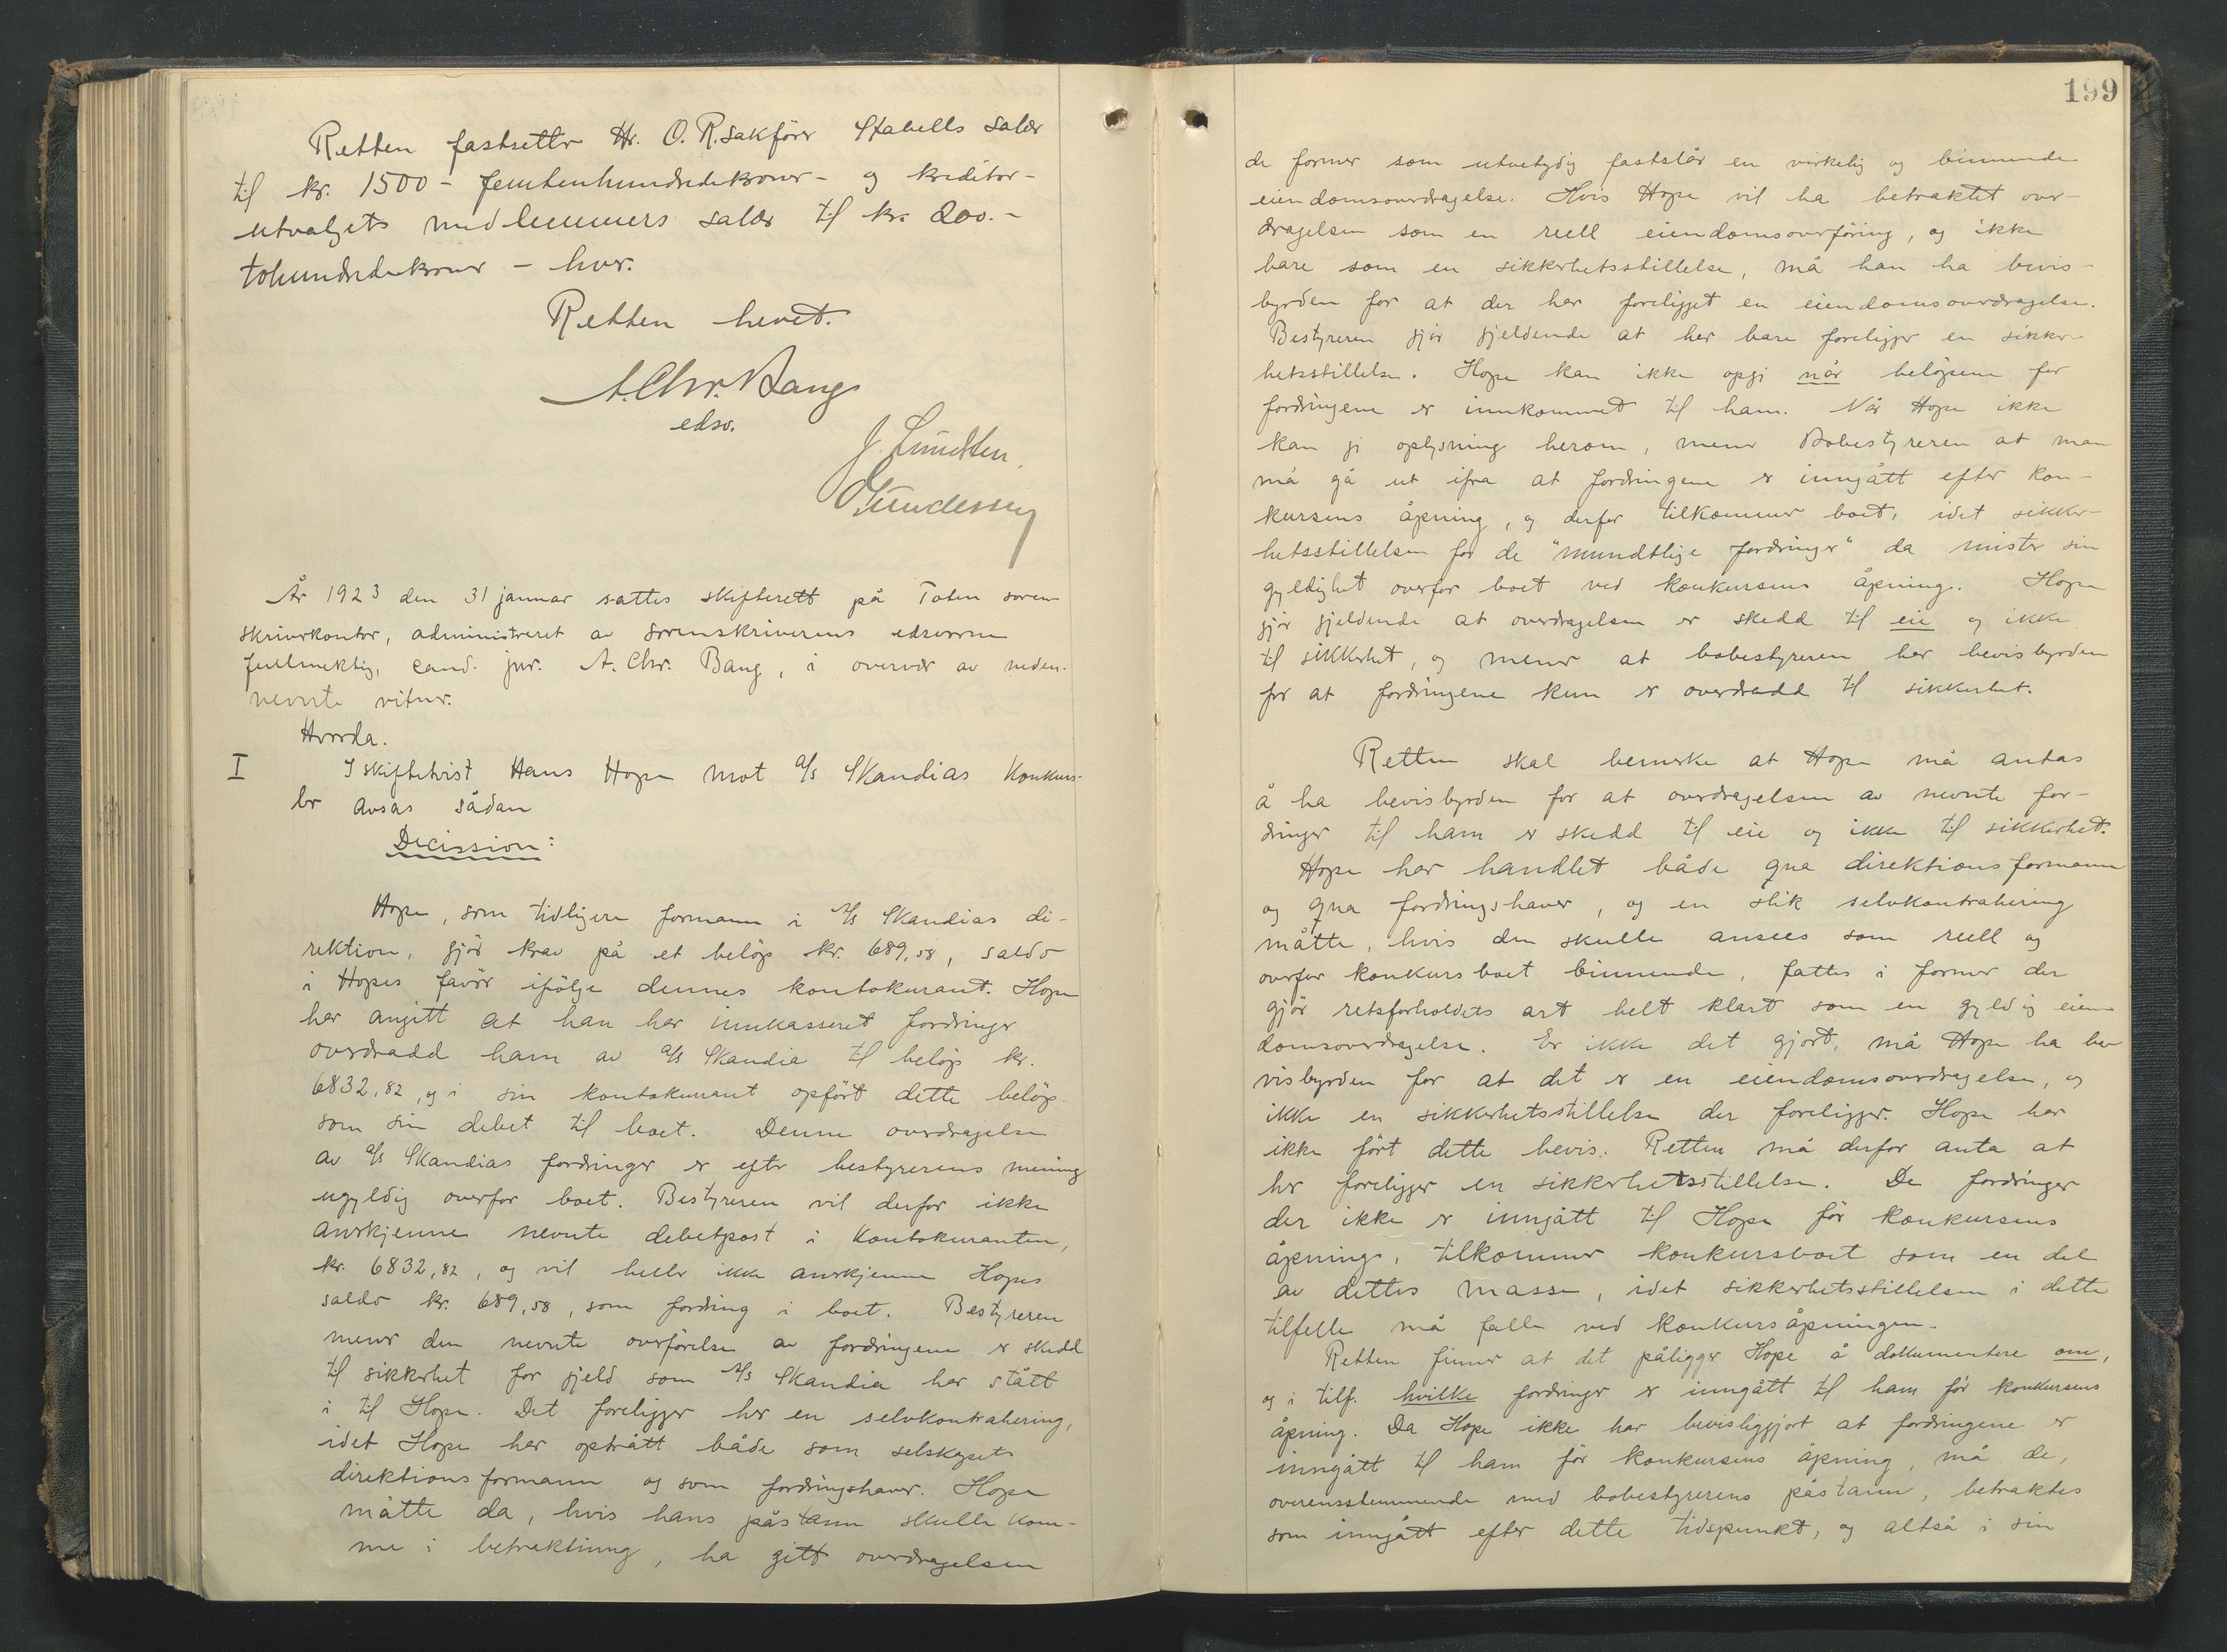 Retten fastsetter Hr. O. R. sakförer Stabells salær
til kr. 1500 - femtenhundredekroner - og kreditor-
utvalgets medlemmers salær til kr. 200.-
tohundredekroner - hver.
Retten hevet.
A. Chr. Bang
edsv.
J. Lundsten.
År 1923 den 31 januar sattes skifterett på Toten soren-
skriverkontor, administreret av sorenskriverens edsvorne
fullmektig, cand. jur. A. Chr. Bang, i overvær av neden-
nevnte vitner.
Hvorda.
I
I skiftetvist Hans Hope mot A/S Skandias konkurs-
bo avsas sådan
Decission:
Hope, som tidligere formann i A/S Skandias di-
rektion, gjör krav på et belöp kr. 689,58, saldo
i Hopes favör ifölge dennes kontokurant. Hope
har angitt at han har innkasseret fordringer
overdradd ham av A/S Skandia til belöp kr.
6832,82, og i sin kontokurant opfört dette belöp
som sin debet til boet. Denne overdragelse
av A/S Skandias fordringer er efter bestyrerens mening
ugyldig overfor boet. Bestyreren vil derfor ikke
anerkjenne nevnte debetpost i kontokuranten,
kr. 6832,82, og vil heller ikke anerkjenne Hopes
saldo kr. 689,58, som fordring i boet. Bestyreren
mener den nevnte overförelse av fordringene er skedd
til sikkerhet for gjeld som A/S Skandia har stått
i til Hope. Det foreligger her en selvkontrahering,
idet Hope har optrått både som selskapets
direktionsformann og som fordringshaver. Hope
måtte da, hvis hans påstann skulle kom-
me i betraktning, ha gitt overdragelsen
199
de former som utvetydig fastslår en virkelig og binnende
eiendomsoverdragelse. Hvis Hope vil ha betraktet over-
dragelsen som en reell eiendomsoverföring, og ikke
bare som en sikkerhetsstillelse, må han ha bevis-
byrden for at der har foreligget en eiendomsoverdragelse.
Bestyreren gjör gjeldende at her bare foreligger en sikker-
hetsstillelse. Hope kan ikke opgi når belöpene for
fordringene er innkommet til ham. Når Hope ikke
kan gi oplysning herom, mener Bobestyreren at man
må gå ut ifra at fordringene er inngått efter kon-
kursens åpning, og derfor tilkommer boet, idet sikker-
hetsstillelsen for de "mundtlige fordringer" da mister sin
gyldighet overfor boet ved konkursens åpning. Hope
gjör gjeldende at overdragelsen er skedd til eie og ikke
til sikkerhet, og mener at bobestyreren har bevisbyrden
for at fordringene kun er overdradd til sikkerhet.
Retten skal bemerke at Hope må antas
å ha bevisbyrden for at overdragelsen av nevnte for-
dringer til ham er skedd til eie og ikke til sikkerhet.
Hope har handlet både qua direktionsformann
og qua fordringshaver, og en slik selvkontrahering
måtte, hvis den skulle ansees som reell og
overfor konkursboet binnende, fattes i former der
gjör retsforholdets art helt klart som en gyldig eien-
domsoverdragelse. Er ikke det gjort, må Hope ha be-
visbyrden for at det er en eiendomsoverdragelse, og
ikke en sikkerhetsstillelse der foreligger. Hope har
ikke fört dette bevis. Retten må derfor anta at
her foreligger en sikkerhetsstillelse. De fordringer
der ikke er inngått til Hope för konkursens
åpning, tilkommer konkursboet som en del
av dettes masse, idet sikkerhetsstillelsen i dette
tilfelle må falle ved konkursåpningen.
Retten finner at det påligger Hope å dokumentere om,
og i tilf. hvilke fordringer er inngått til ham för konkursens
åpning. Da Hope ikke har bevisliggjort at fordringene er
inngått til ham för konkursens åpning, må de,
overensstemmende med bobestyrerens påstann, betraktes
som inngått efter dette tidspunkt, og altså i sin